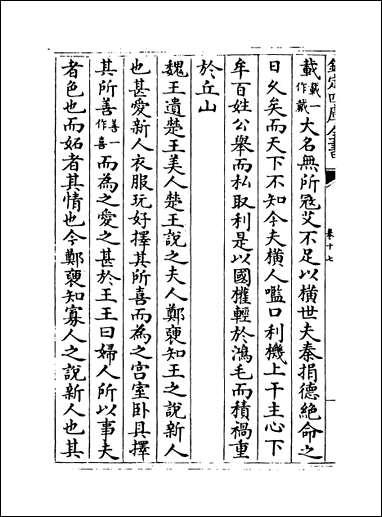 欽定四庫全書
卷十七
載戴一作戴大名無所寇艾不足以橫世夫秦捐德絕命之
日久矣而天下不知今夫橫人嚂口利機上干主心下
牟百姓公舉而私取利是以國權輕於鴻毛而積禍重
於丘山
魏王遺楚王美人楚王說之夫人鄭褏知王之說新人
也甚愛新人衣服玩好擇其所喜而為之宮室臥具擇
其所善善一作喜而為之愛之甚於王王曰婦人所以事夫
者色也而妬者其情也今鄭褏知寡人之說新人也其